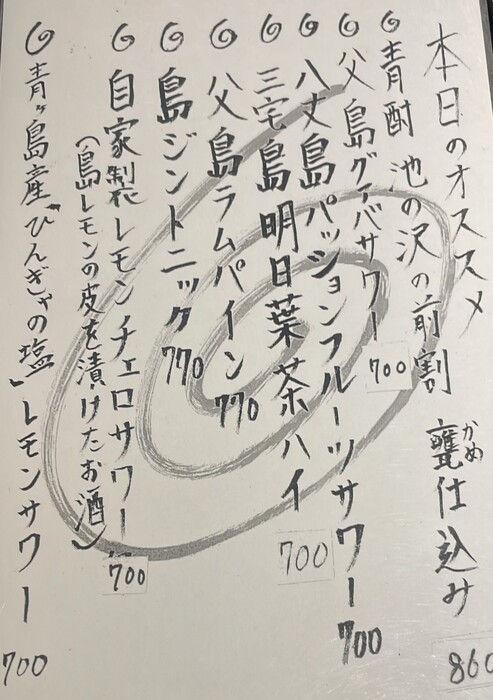 本日のオススメ
青酎 池の沢の前割 甕仕込み 860
かめ
父島グァバサワー 700
八丈島パッションフルーツサワー 700
三宅島明日葉茶ハイ 700
父島ラムパイン 770
島ジントニック 770
自家製レモンチェロサワー 700
(島レモンの皮を漬けたお酒)
青ヶ島産"ひんぎゃの塩"レモンサワー 700